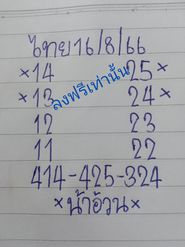 ไทย16/8/66
×14 25×
×13 24×
12 23
11 22
414-425-324
×น้าอ้วน×
ลงฟรีเท่านั้น